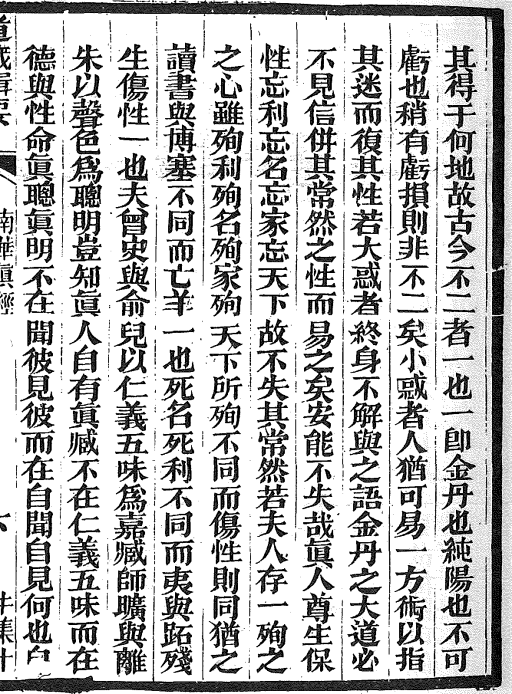 其得于何地故古今不二者一也一卽金丹也純陽也不可
虧也稍有虧損則非不二矣小惑者人猶可易一方術以指
其迷而復其性若大惑者終身不解與之語金丹之大道必
不見信併其常然之性而易之矣安能不失哉眞人尊生保
性忘利忘名忘家忘天下故不失其常然若夫人存一殉之
之心雖殉利殉名殉家殉天下所殉不同而傷性則同猶之
讀書與博塞不同而亡羊一也死名死利不同而夷與跖殘
生傷性一也夫曾史與俞兒以仁義五味爲嘉臧師曠與離
朱以聲色爲聰明豈知眞人自有眞臧不在仁義五味而在
德與性命眞聰眞明不在聞彼見彼而在自聞自見何也
道藏輯要
南華眞經
六
牛集